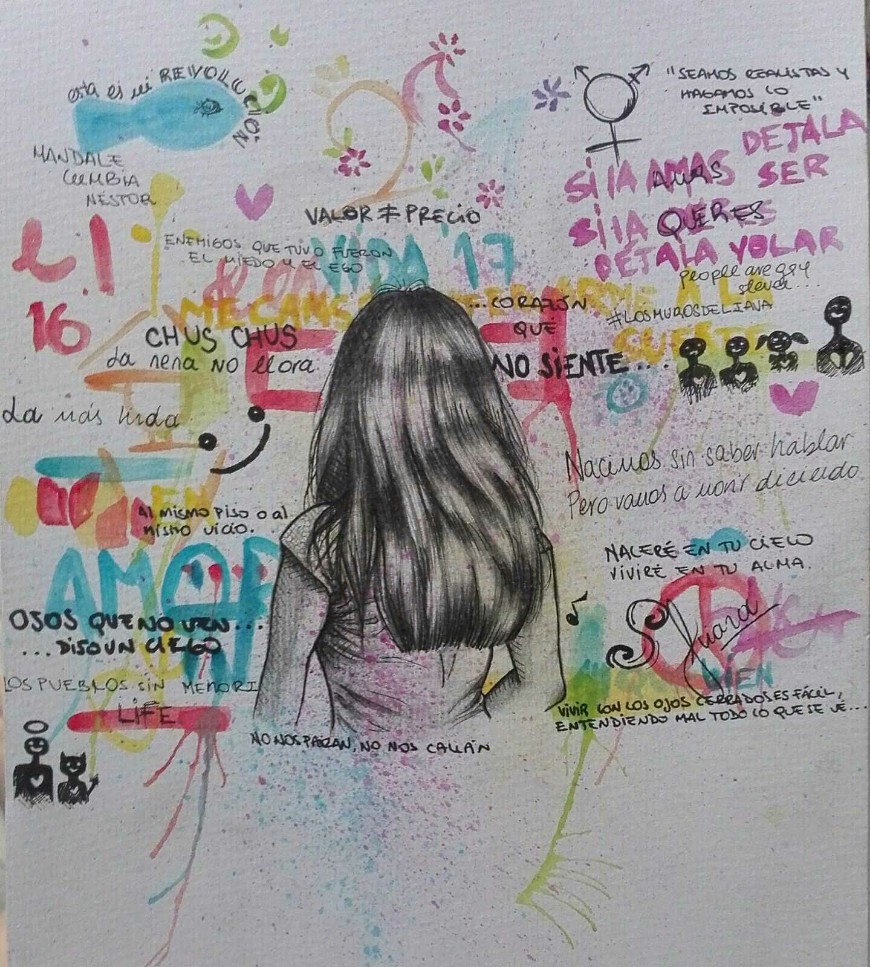 esta es mi REVOLUCIÓN
"SEAMOS REALISTAS Y
HAGAMOS LO
IMPOSIBLE"
MANDALE
CUMBIA
NESTOR
SI LA AMAS DEJALA
SER
SI LA QUERES
DEJALA VOLAR
VALOR ≠ PRECIO
ENEMIGOS QUE TUVO FUERON
EL MIEDO Y EL EGO
VIDA '17
people are gay
steven...
#LOSMUROSDELIANA
21
16
ME CANSE
...CORAZÓN
QUÉ
NO SIENTE...
CHUS CHUS
La nena NO llora
La más linda
Nacimos sin saber hablar
Pero vamos a morir diciendo
EN
Al mismo piso o al
mismo vicio.
AMOR
NACERÉ EN TU CIELO
VIVIRÉ EN TU ALMA.
OJOS QUE NO VEN...
...DIJO UN CIEGO
LOS PUEBLOS SIN MEMORI
LIFE
BIEN
VIVIR CON LOS OJOS CERRADOS ES FÁCIL,
ENTENDIENDO MAL TODO LO QUE SE VÉ...
NO NOS PARAN, NO NOS CALLAN